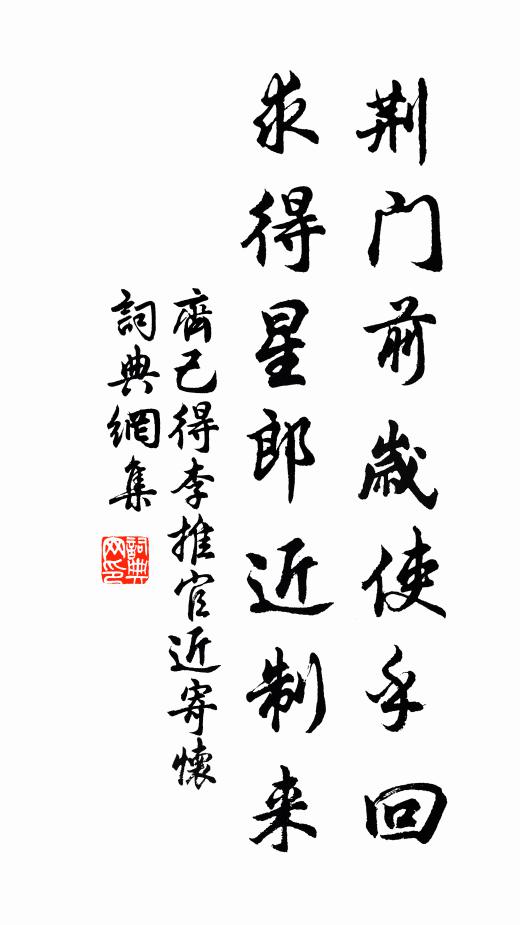 荆门前歲使乎回
求得星郎近制来
齊己得李推官近寄懷
詞典網集
詞典网印